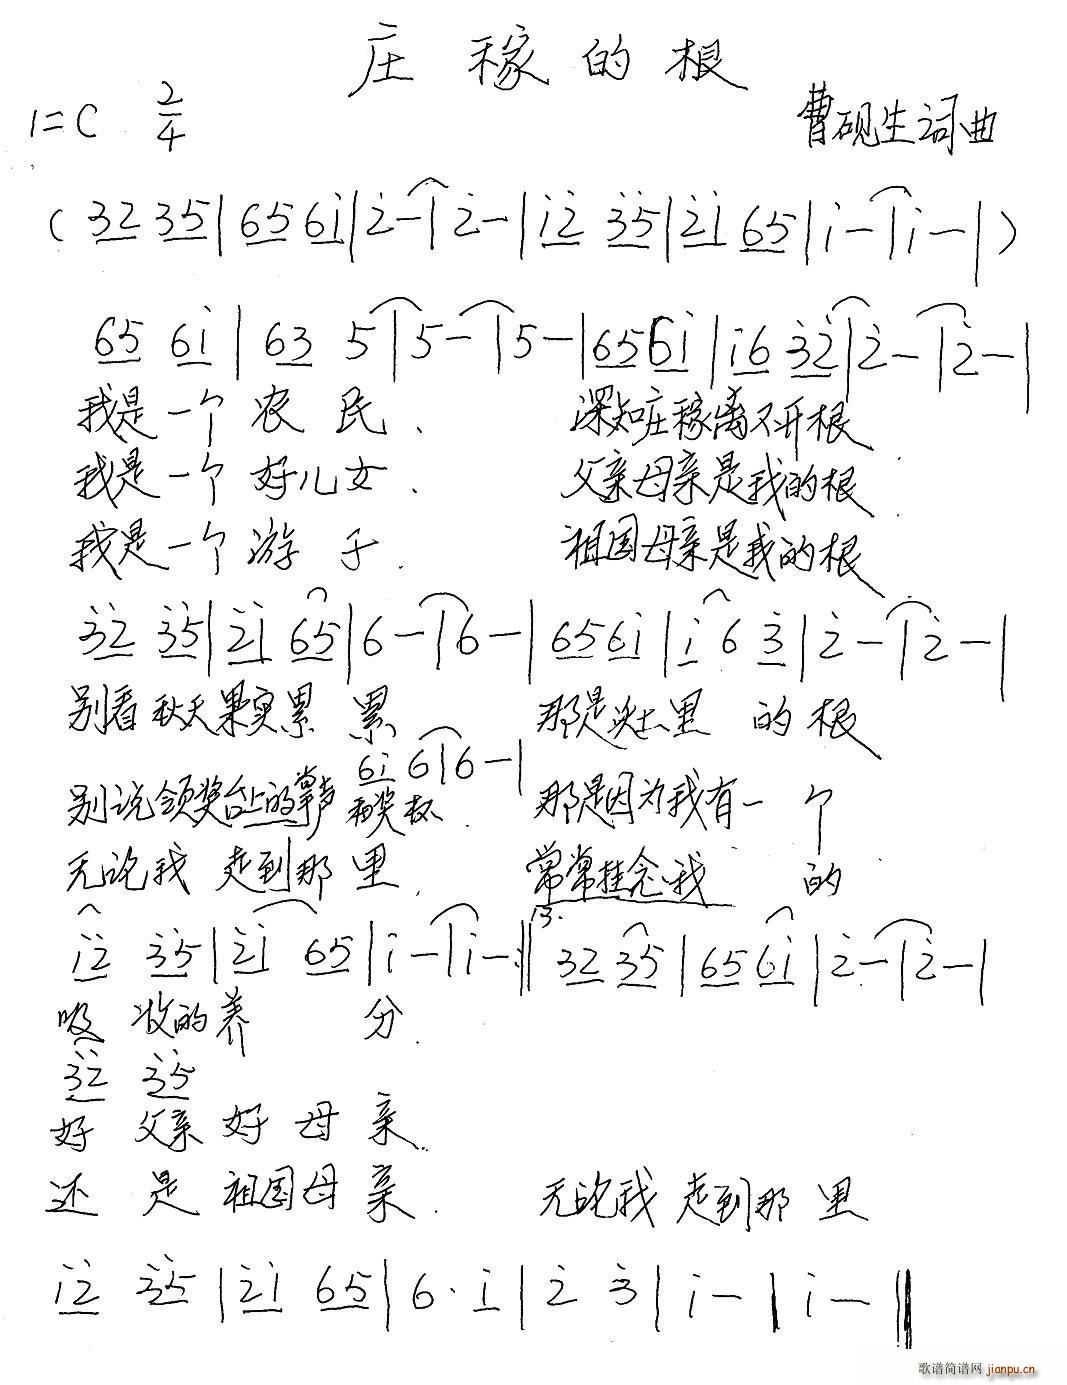 庄稼的根
1=C 2/4
曹砚生词曲
( 32 35 | 65 6i | 2̇ - | 2̇ - | i2̇ 3̇5̇ | 2̇i 65 | i - | i - | )
65 6i | 63 5 | 5 - | 5 - | 65 6i | i6 3̇2̇ | 2̇ - | 2̇ - |
我是一个农民. 深知庄稼离不开根
我是一个好儿女. 父亲母亲是我的根.
我是一个游子. 祖国母亲是我的根
3̇2̇ 3̇5̇ | 2̇i 65 | 6 - | 6 - | 65 6i | i 6 3̇ | 2̇ - | 2̇ - |
别看秋天果实累累 那是里的根
6i 6 | 6 - |
别说领奖台上的掌声和奖杯. 那是因为我有一个
无论我走到那里. 常常挂念我的
i2̇ 3̇5̇ | 2̇i 65 | i - | i - :‖ 13. 32 35 | 65 6i | 2̇ - | 2̇ - |
吸收的养分.
3̇2̇ 3̇5̇
好父亲好母亲.
还是祖国母亲. 无论我走到那里
i2̇ 3̇5̇ | 2̇i 65 | 6· i | 2̇ 3̇ | i - | i - ‖
歌谱简谱网 jianpu.cn